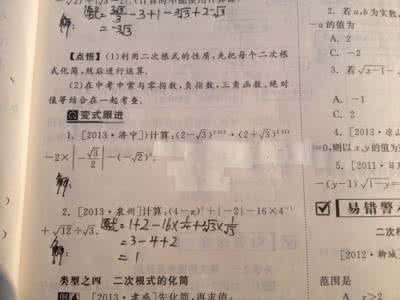 解:原式=3√3/3-3+1-3√3+2-√3
=-3√3
【点悟】(1)利用二次根式的性质,先把每个二次根
式化简,然后进行运算.
(2)在中考中常与零指数,负指数,三角函数,绝对
值等结合在一起考查.
变式跟进
1.[2013·济宁]计算:(2-√3)²⁰¹²·(2+√3)²⁰¹³
-2×|-√3/2|-(-√2)⁰.
解:
2.[2013·泉州]计算:(4-π)⁰+|-2|-16×4⁻¹
+√12÷√3.
解:
原式=1+2-16×1/4+2√3×1/√3
=3-4+2
=1
类型之四 二次根式的化简
[2013·孝感]先化简,再求值.
2.若a,b为实数,
-a的值为
A.2
C.-2
3.若√x-1-
A.-1
C.2
4.[2013·凉山
=0,则以x,y的值为
5.[2011·
-(y-1)√1-y=
易错警
二次
[2012·聊城]
范围是
A.x>2